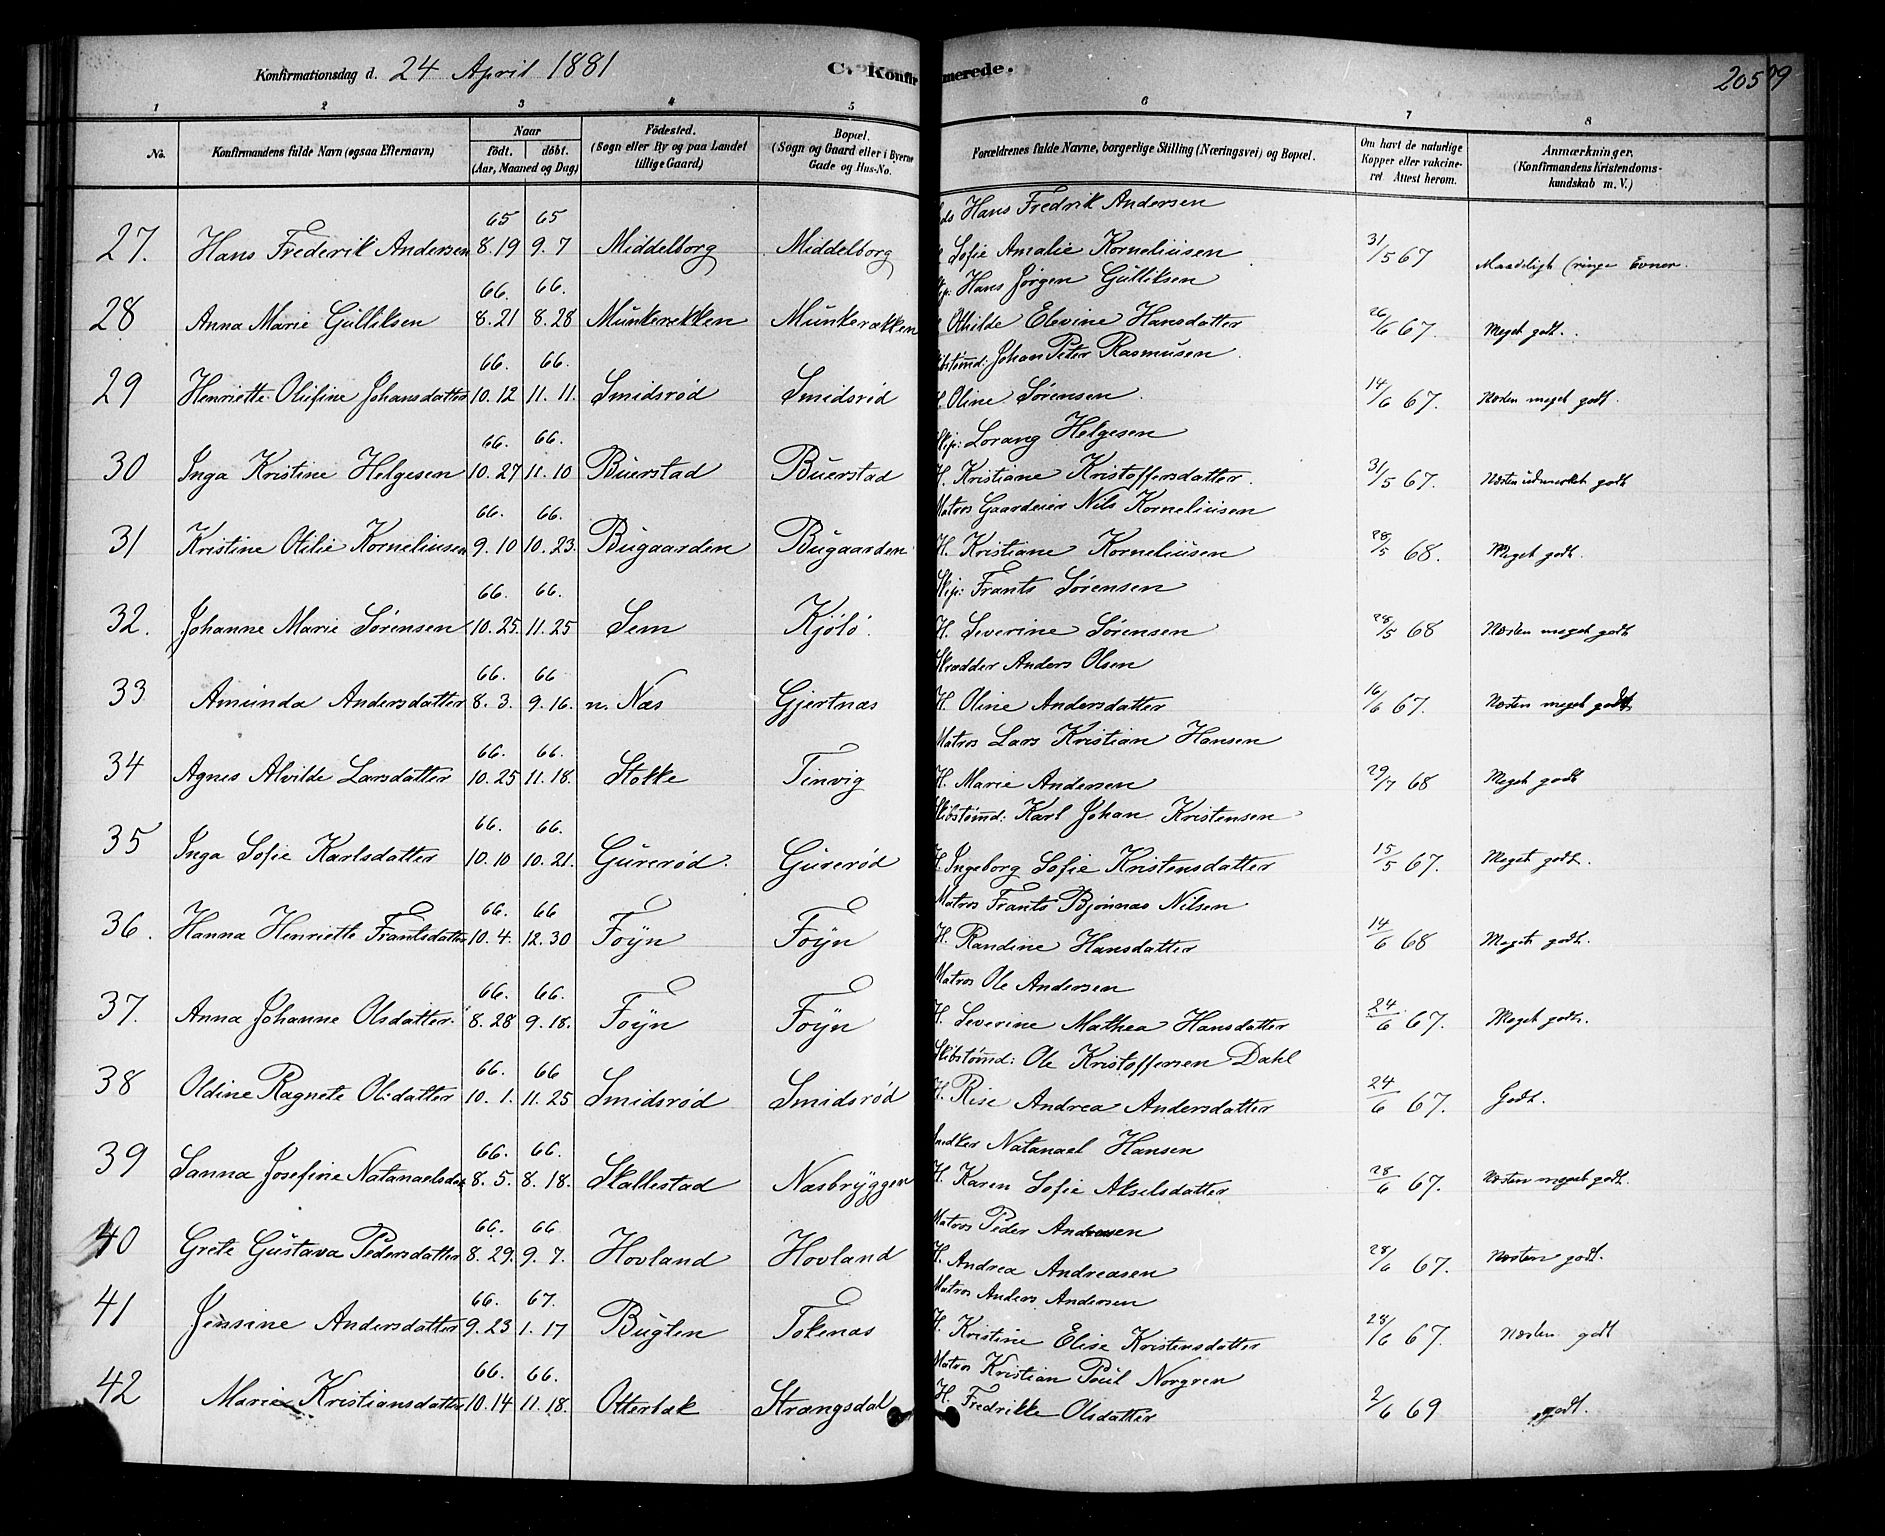 Konfirmationsdag d. 24 April 1881 C. Konfirmerede. 205
1 2 3 4 5 6 7 8
No. Konfirmandens fulde Navn (ogsaa Efternavn) Naar födt. döbt. (Aar, Maaned og Dag) Födested. (Sogn eller By og paa Landet tillige Gaard) Bopæl. (Sogn og Gaard eller i Byerne Gade og Hus-No. Forældrenes fulde Navne, borgerlige Stilling (Næringsvei) og Bopæl. Om havt de naturlige Kopper eller vakcineret Attest herom. Anmærkninger. (Konfirmandens Kristendomskundskab m. V.)
65 65 Hans Fredrik Andersen
27. Hans Frederik Andersen 8.19 9.7 Middelborg Middelborg Sofie Amalie Korneliusen 31/5 67 Maadeligt (ringe Evner.
66. 66. Skip: Hans Jørgen Gulliksen
28 Anna Marie Gulliksen 8.21 8.28 Munkerekken Munkerækken Othilde Elevine Hansdatter 26/6 67. Meget godt.
66. 66. Skibstømd: Johan Peter Rasmusen
29 Henriette Olufine Johansdatter 10.12 11.11. Smidsrød Smidsrød H. Oline Sørensen 14/6 67. Næsten meget godt.
66. 66. Skip: Lorang Helgesen
30 Inga Kristine Helgesen 10.27 11.10 Buerstad Buerstad H. Kristiane Kristoffersdatter. 31/5 67. Næsten udmerket godt
66. 66. Matros Gaardeier Nils Korneliusen
31 Kristine Otilie Korneliusen 9.10 10.23. Bugaarden Bugaarden H. Kristiane Korneliusen 28/5 68. Meget godt.
66. 66. Skip: Frants Sørensen
32. Johanne Marie Sørensen 10.25. 11.25 Sem Kjölö. H. Severine Sørensen 28/5 68 Næsten meget godt
66. 66 Skrædder Anders Olsen
33 Amunda Andersdatter 8.3. 9.16. n. Næs Gjertnæs H. Oline Andersdatter 16/6 67. Næsten meget godt
66. 66. Matros Lars Kristian Hansen
34 Agnes Alvilde Larsdatter 10.25 11.18. Stokke Tinvig H. Marie Andersen 29/7 68 Meget godt
66. 66. Skibstømd: Karl Johan Kristensen
35 Inga Sofie Karlsdatter 10.10 10.21. Gurerød. Gurerød H. Ingeborg Sofie Kristensdatter 15/5 67. Meget godt.
66. 66 Matros Frants Bjønnæs Nilsen
36. Hanna Henriette Frantsdatter 10.4. 12.30 Foyn Foyn H. Randine Hansdatter 14/6 68 Meget godt.
66. 66. Matros Ole Andersen
37. Anna Johanne Olsdatter. 8.28 9.18. Foyn Foyn H. Severine Mathea Hansdatter 24/6 67. Meget godt.
66. 66 Skibstømd: Ole Kristoffersen Dahl
38 Oldine Ragnete Olsdatter 10.1. 11.25 Smidsrød Smidsrød H. Rise Andrea Andersdatter 24/6 67. Godt.
66. 66. Snedker Natanael Hansen
39 Sanna Josefine Natanaelsdatt 8.5. 8.18. Skallestad Næsbryggen H. Karen Sofie Akselsdatter 28/6 67. Næsten meget godt.
66. 66 Matros Peder Andreasen
40 Grete Gustava Pedersdatter 8.29. 9.7. Hovland Hovland H. Andrea Andreasen 28/6 67. Næsten godt.
66. 67. Matros Anders Andersen
41 Jensine Andersdatter 9.23 1.17 Bugten Tokenæs H. Kristine Elise Kristensdatter 28/6 67. Næsten godt
66. 66. Matros Kristian Poul Norgren
42 Marie Kristiansdatter 10.14 11.18. Otterbæk Strangsdal H. Fredrikke Olsdatter 2/6 69 godt.